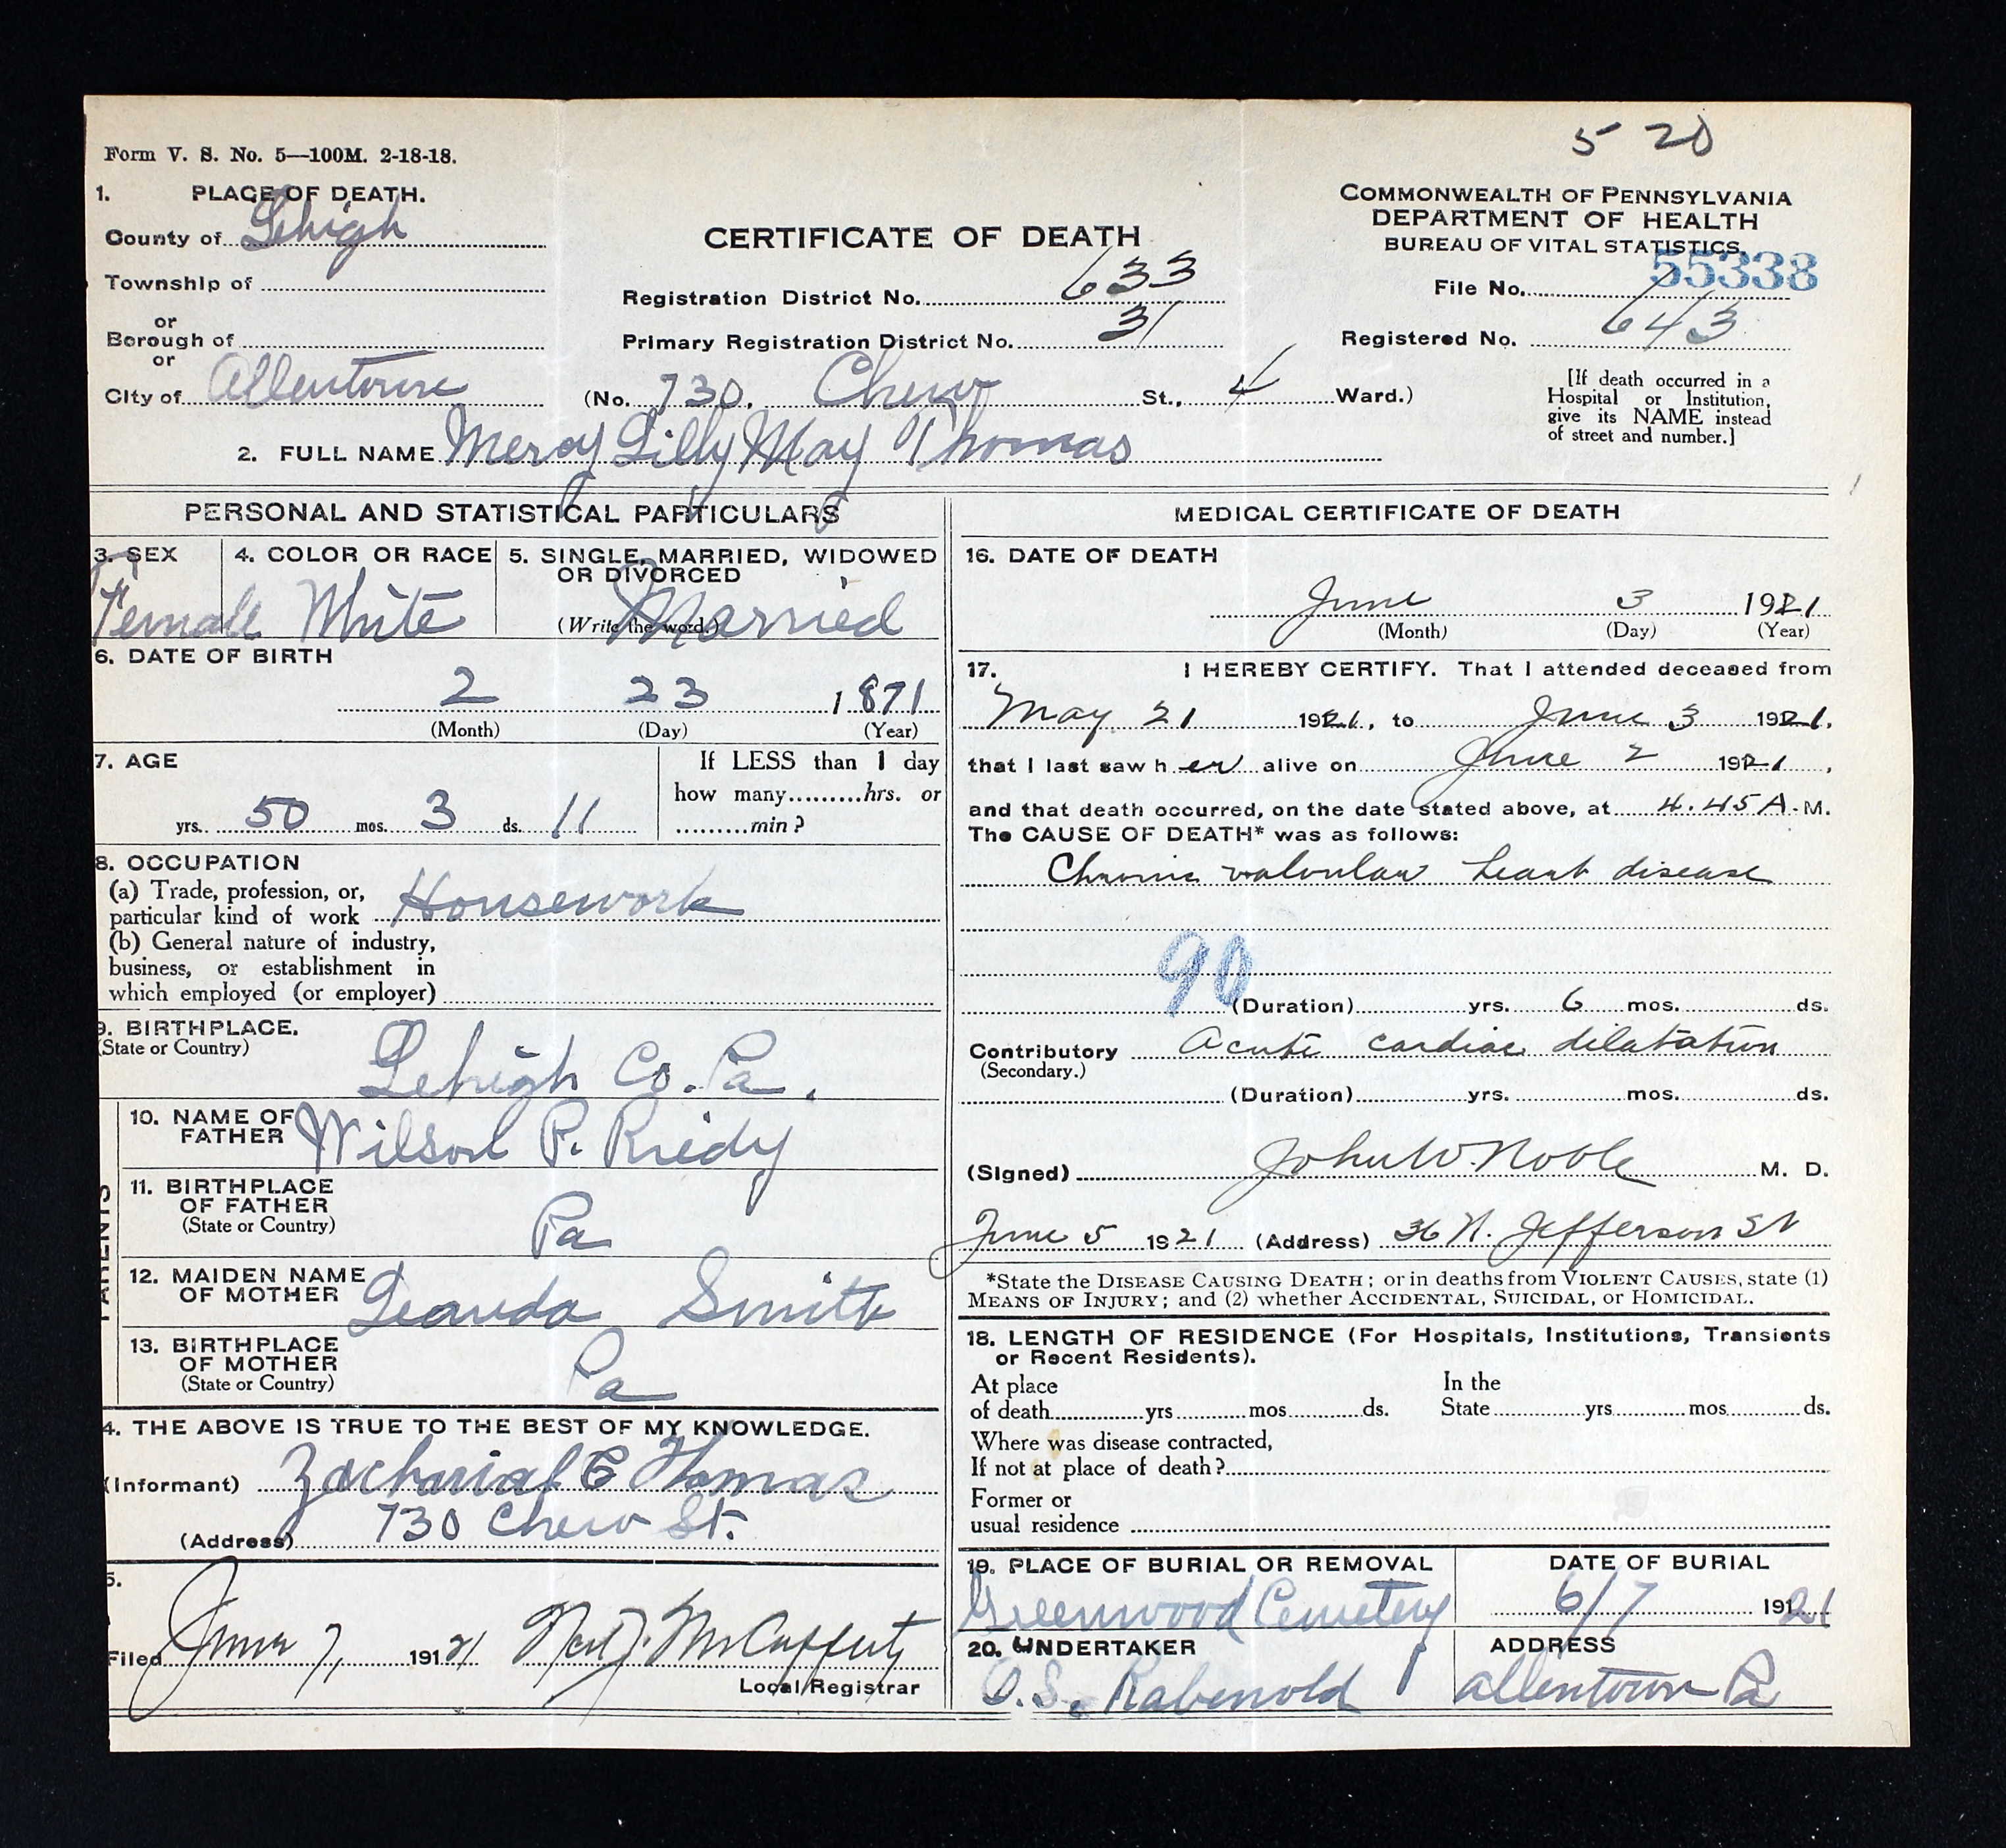 5-20
Form V. S. No. 5—100M. 2-18-18.
1. PLACE OF DEATH.
County of Lehigh
Township of
or
Borough of
or
City of Allentown
CERTIFICATE OF DEATH
Registration District No. 633
Primary Registration District No. 31
(No. 730. Chew St., 4 Ward.)
COMMONWEALTH OF PENNSYLVANIA
DEPARTMENT OF HEALTH
BUREAU OF VITAL STATISTICS
File No. 55338
Registered No. 643
[If death occurred in a
Hospital or Institution,
give its NAME instead
of street and number.]
2. FULL NAME Mercy Lilly May Thomas
PERSONAL AND STATISTICAL PARTICULARS
3. SEX
Female
4. COLOR OR RACE
White
5. SINGLE, MARRIED, WIDOWED
OR DIVORCED
(Write the word.) Married
6. DATE OF BIRTH
2 23 1871
(Month) (Day) (Year)
7. AGE
yrs. 50 mos. 3 ds. 11
If LESS than 1 day
how many.........hrs. or
.........min?
8. OCCUPATION
(a) Trade, profession, or,
particular kind of work Housework
(b) General nature of industry,
business, or establishment in
which employed (or employer)
9. BIRTHPLACE.
(State or Country)
Lehigh Co. Pa.
PARENTS
10. NAME OF
FATHER Wilson P. Riedy
11. BIRTHPLACE
OF FATHER
(State or Country) Pa
12. MAIDEN NAME
OF MOTHER Leanda Smith
13. BIRTHPLACE
OF MOTHER
(State or Country) Pa
4. THE ABOVE IS TRUE TO THE BEST OF MY KNOWLEDGE.
(Informant) Zachariah C Thomas
(Address) 730 Chew St.
5.
Filed June 7, 1921 McCafferty
Local Registrar
MEDICAL CERTIFICATE OF DEATH
16. DATE OF DEATH
June 3 1921
(Month) (Day) (Year)
17. I HEREBY CERTIFY. That I attended deceased from
May 21 1921, to June 3 1921,
that I last saw h er alive on June 2 1921,
and that death occurred, on the date stated above, at 4.45 A. M.
The CAUSE OF DEATH* was as follows:
Chronic valvular heart disease
90
(Duration) yrs. 6 mos. ds.
Contributory Acute cardiac dilatation
(Secondary.)
(Duration) yrs. mos. ds.
(Signed) John W. Noble M. D.
June 5 1921 (Address) 36 N. Jefferson St
*State the DISEASE CAUSING DEATH; or in deaths from VIOLENT CAUSES, state (1)
MEANS OF INJURY; and (2) whether ACCIDENTAL, SUICIDAL, or HOMICIDAL.
18. LENGTH OF RESIDENCE (For Hospitals, Institutions, Transients
or Recent Residents).
At place
of death yrs mos ds.
In the
State yrs mos ds.
Where was disease contracted,
If not at place of death?
Former or
usual residence
19. PLACE OF BURIAL OR REMOVAL
Greenwood Cemetery
DATE OF BURIAL
6/7 1921
20. UNDERTAKER
O.S. Rabenold
ADDRESS
Allentown Pa